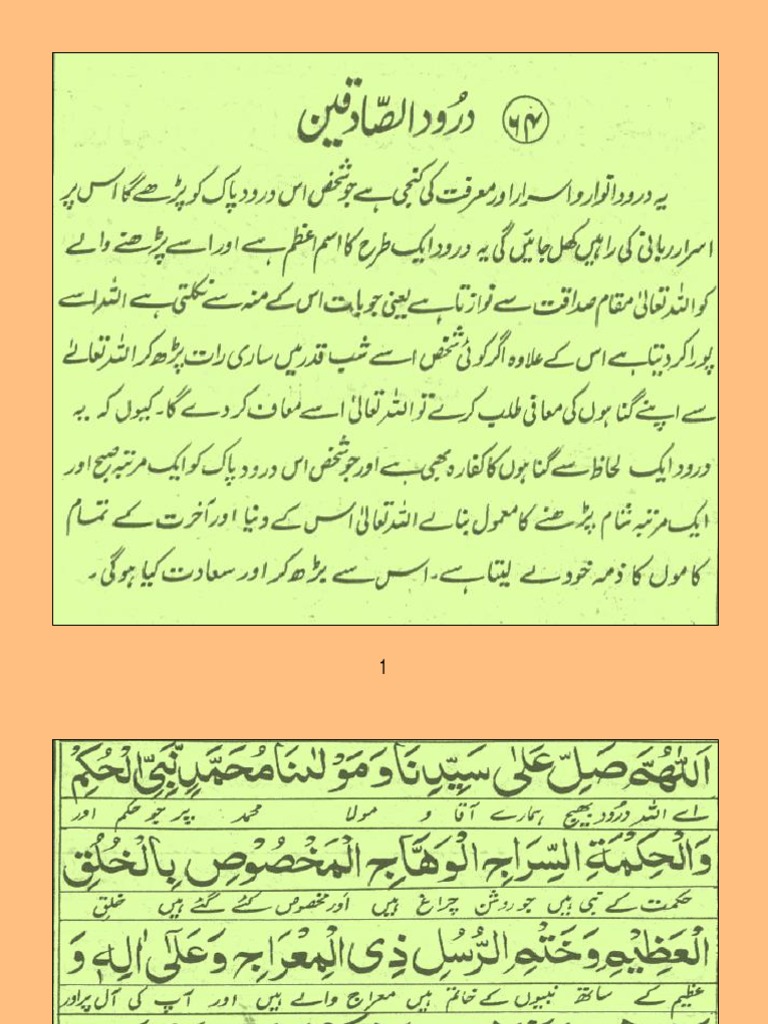 ۶۴ درود الصّادقین
یہ درود انوار و اسرار اور معرفت کی کنجی ہے جو شخص اس درود پاک کو پڑھے گا اس پر
اسرار ربانی کی راہیں کھل جائیں گی یہ درود ایک طرح کا اسم اعظم ہے اور اسے پڑھنے والے
کو اللہ تعالیٰ مقام صداقت سے نوازتا ہے یعنی جو بات اس کے منہ سے نکلتی ہے اللہ اسے
پورا کر دیتا ہے اس کے علاوہ اگر کوئی شخص اسے شب قدر میں ساری رات پڑھ کر اللہ تعالےٰ
سے اپنے گناہوں کی معافی طلب کرے تو اللہ تعالیٰ اسے معاف کر دے گا۔ کیوں کہ یہ
درود ایک لحاظ سے گناہوں کا کفارہ بھی ہے اور جو شخص اس درود پاک کو ایک مرتبہ صبح اور
ایک مرتبہ شام پڑھنے کا معمول بنالے اللہ تعالیٰ اس کے دنیا اور آخرت کے تمام
کاموں کا ذمہ خود لے لیتا ہے۔ اس سے بڑھ کر اور سعادت کیا ہوگی۔
1
اَللّٰهُمَّ صَلِّ عَلٰى سَيِّدِنَا وَمَوْلٰنَا مُحَمَّدٍ نَّبِيِّ الْحُكْمِ
اے اللہ درود بھیج ہمارے آقا و مولا محمد پر جو حکم اور
وَالْحِكْمَةِ السِّرَاجِ الْوَهَّاجِ الْمَخْصُوْصِ بِالْخُلُقِ
حکمت کے نبی ہیں جو روشن چراغ ہیں اور مخصوص کئے گئے ہیں خلق
الْعَظِيْمِ وَخَتْمِ الرُّسُلِ ذِى الْمِعْرَاجِ وَعَلٰٓى اٰلِهٖ وَ
عظیم کے ساتھ نبیوں کے خاتم ہیں معراج والے ہیں اور آپ کی آل پر اور